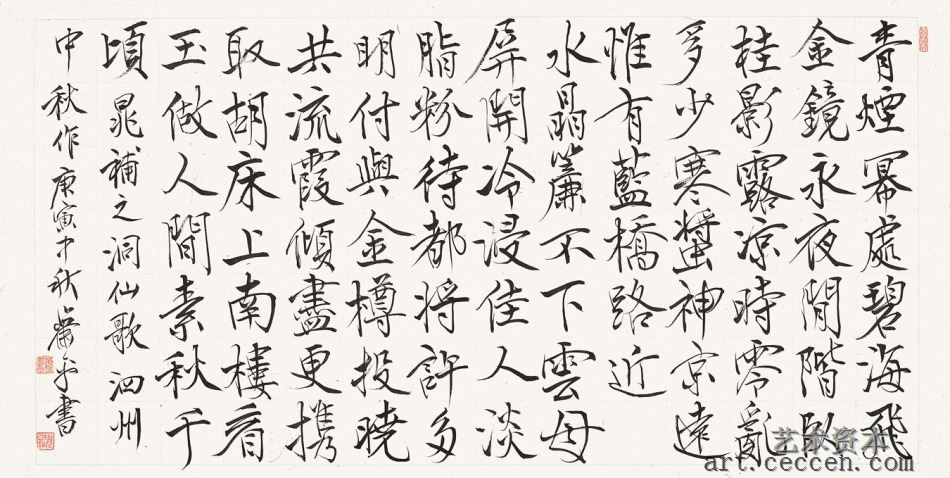 青煙冪處碧海飛
金鏡永夜閒階臥
桂影露涼時零亂
多少寒螿神京遠
惟有藍橋路近
水晶簾不下雲母
屏開冷浸佳人淡
脂粉待都將許多
明付與金樽投曉
共流霞傾盡更携
取胡床上南樓看
玉做人間素秋千
頃 晁補之洞仙歌泗州
中秋作庚寅中秋書
艺术资本
art.cecceh.com